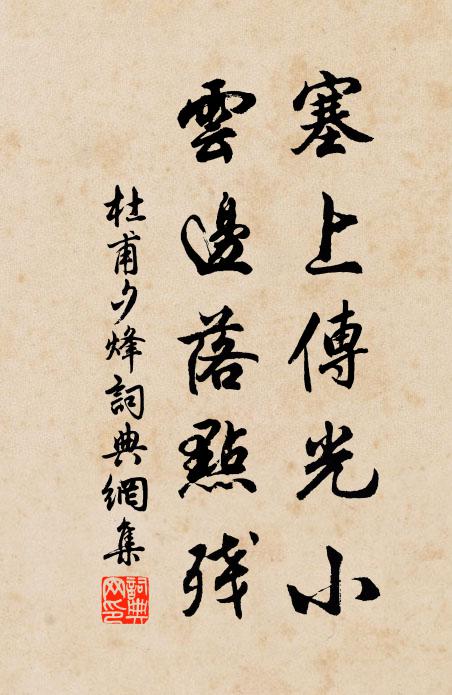 塞上傳光小
雲邊落點残
杜甫夕烽詞典網集
詞典網印